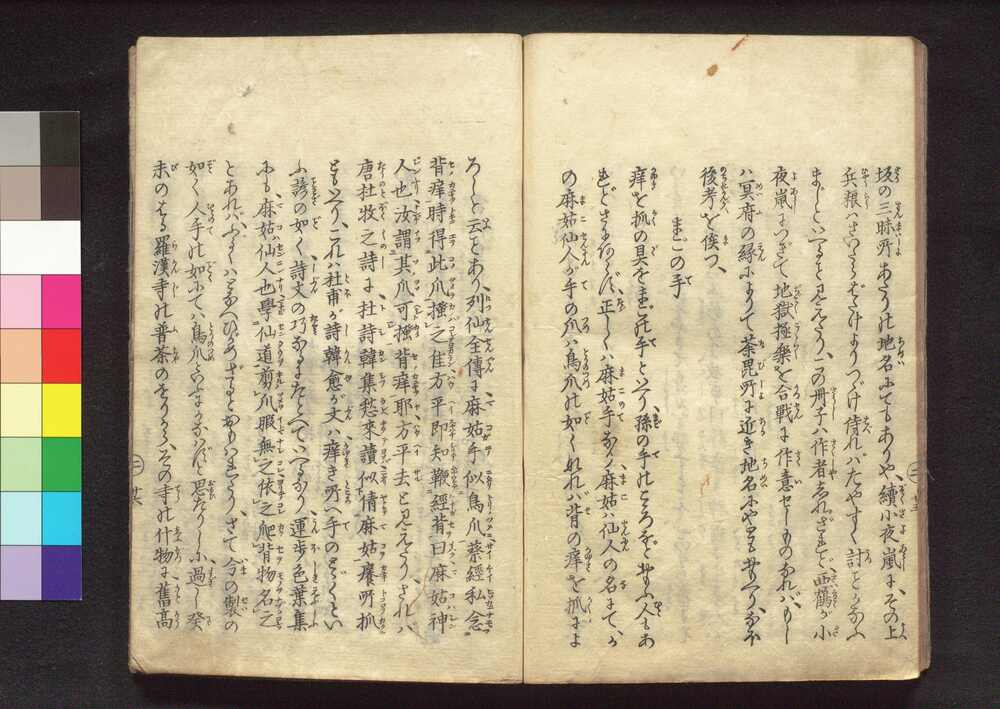 坂の三昧所あたりの地名にてもありや、續小夜嵐に、その上
兵粮ハさいたらばだけよりつゞけ侍れバたやすく討とりたまふ
ましといへること見えたり、この冊子ハ作者しれざれど、西鶴が小
夜嵐につぎて地獄極樂を合戰に作意せしものなれバ、もし
ハ冥府の縁によりて荼毘所に近き地名にやともおもへり、なほ
後考を俟つ、
まごの手
痒を抓の具をまごの手といへり、孫の手のこゝろなどおもふ人もあ
れどさにあらず、正しくハ麻姑手なり、麻姑ハ仙人の名にて、か
の麻姑仙人が手の爪ハ鳥爪の如くなれバ背の痒を抓によ
ろしと云ことあり、列仙全傳に麻姑手似鳥爪蔡經私念
背痒時得此爪搔之佳方平即知鞭經背曰麻姑神
人也汝謂其爪可搔背痒耶方平去と見えたり、されバ
唐杜牧之詩に杜詩韓集愁來讀似倩麻姑癢所抓
ともいへり、これハ杜甫が詩韓愈が文ハ痒き所へ手のとゞくとい
ふ諺の如く詩文の巧なるをたとへていへるなり運歩色葉集
にも麻姑仙人也學仙道剪爪暇無之依之爬背物名之
とあれバ、ふるくハとなへひがめざることおもはれたり、さて今の製の
如く人手の如にてハ鳥爪といふにかなはずと思たりしに過し癸
未のとし羅漢寺の普茶のをりから、その寺の什物に舊高